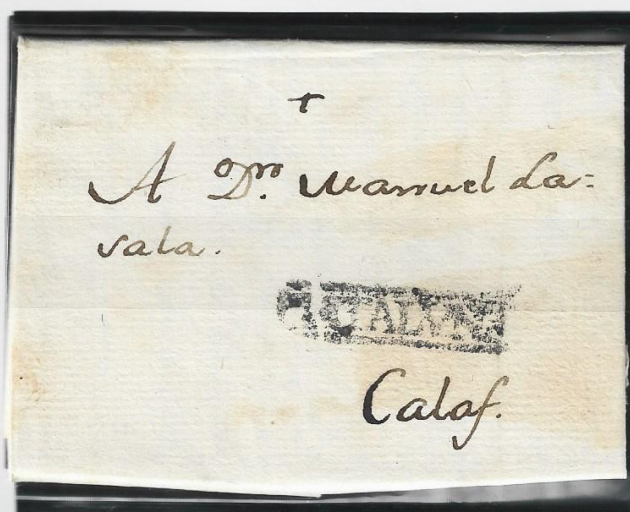 +
A Dn. Manuel La=
sala.
Calaf.